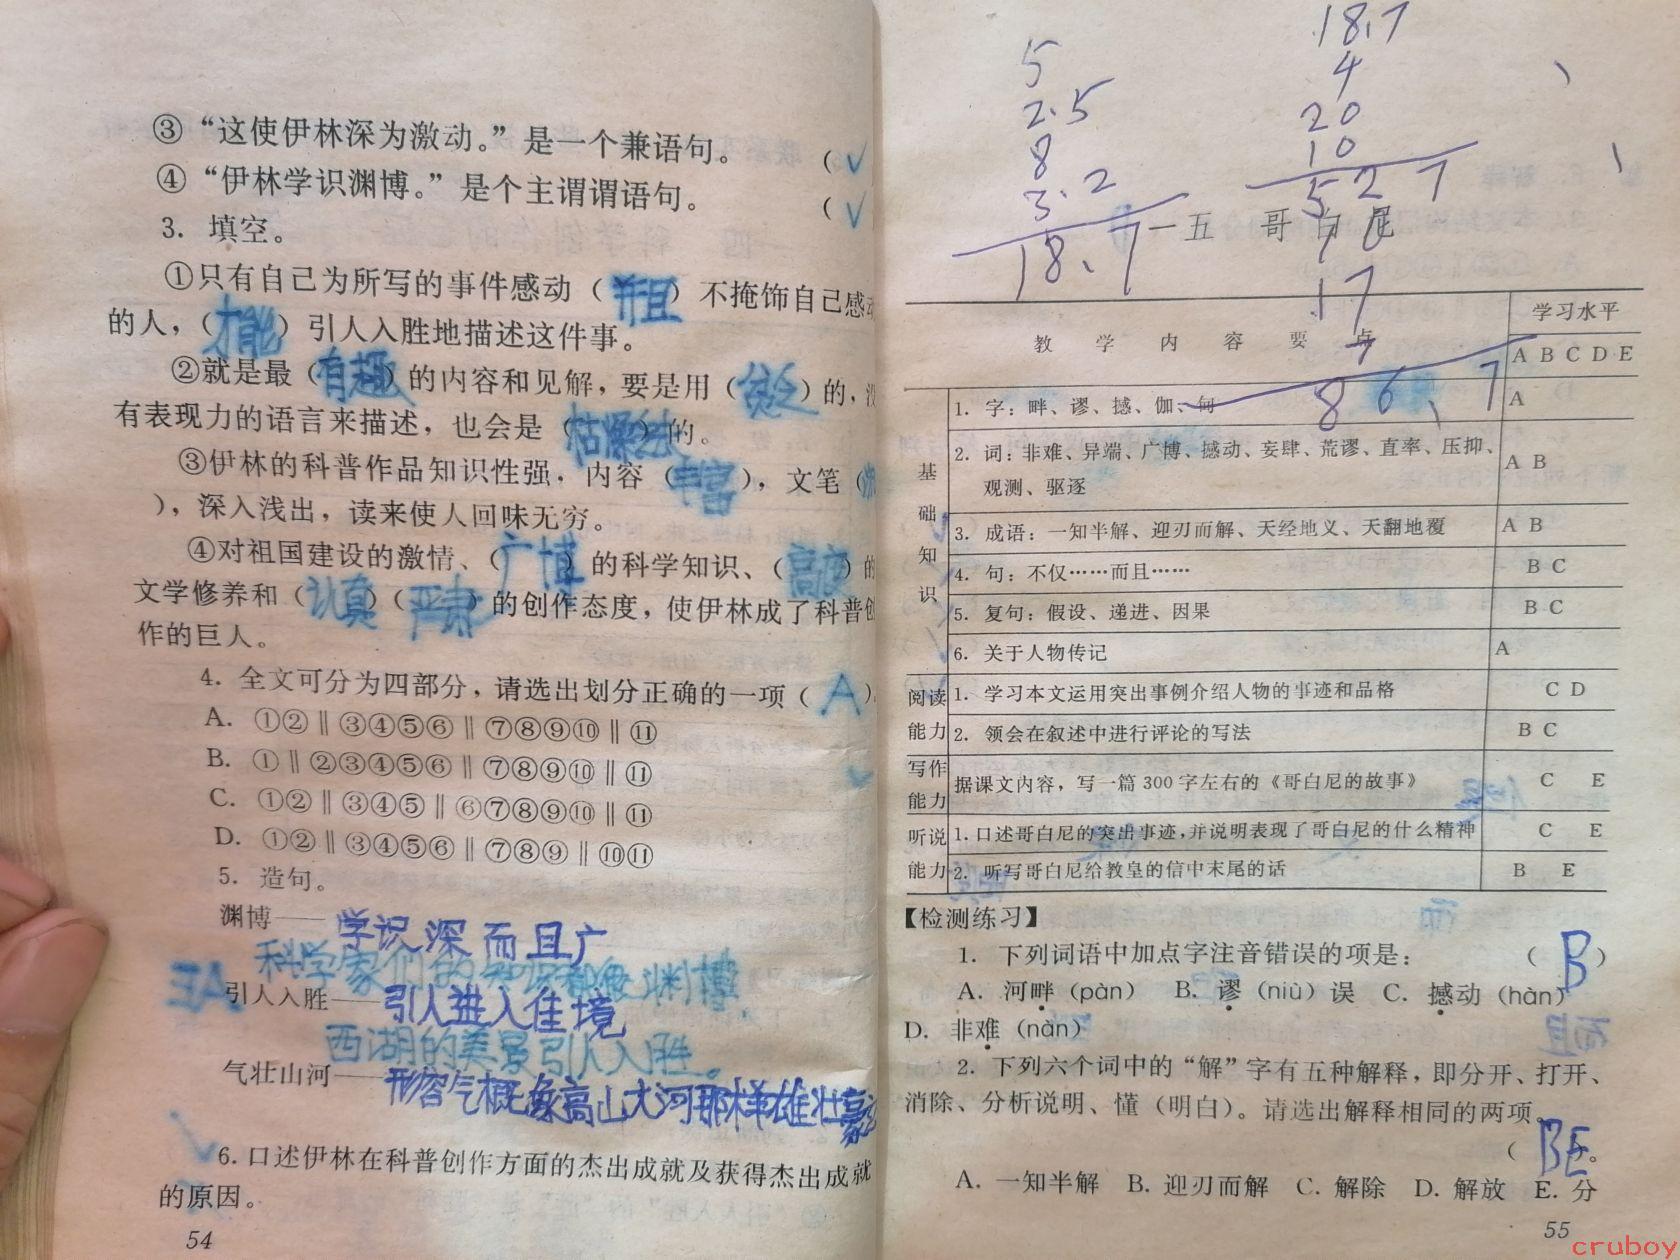 ③“这使伊林深为激动。”是一个兼语句。 (✓
④“伊林学识渊博。”是个主谓谓语句。 (✓
3. 填空。
①只有自己为所写的事件感动（并且）不掩饰自己感动
的人，（才能）引人入胜地描述这件事。
②就是最（有趣）的内容和见解，要是用（ ）的，没
有表现力的语言来描述，也会是（ ）的。
③伊林的科普作品知识性强，内容（丰富），文笔（
），深入浅出，读来使人回味无穷。
④对祖国建设的激情、（广博）的科学知识、（高度）的
文学修养和（认真）（严肃）的创作态度，使伊林成了科普创
作的巨人。
4. 全文可分为四部分，请选出划分正确的一项（A）
A. ①②‖③④⑤⑥‖⑦⑧⑨⑩‖⑪
B. ①‖②③④⑤⑥‖⑦⑧⑨⑩‖⑪
C. ①②‖③④⑤‖⑥⑦⑧⑨⑩‖⑪
D. ①②‖③④⑤⑥‖⑦⑧⑨‖⑩⑪
5. 造句。
渊博——学识深而且广
科学家们的知识都很渊博。
引人入胜——引人进入佳境
西湖的美景引人入胜。
气壮山河——形容气概象高山大河那样雄壮豪迈
6. 口述伊林在科普创作方面的杰出成就及获得杰出成就
的原因。
54
5
2.5
8
3.2
18.7
18.7
4
20
10
52 7
10
17
7
86.7
一五 哥白尼
教学内容要点
学习水平
A B C D E
基础知识
1. 字：畔、谬、撼、伽、甸 A
2. 词：非难、异端、广博、撼动、妄肆、荒谬、直率、压抑、
观测、驱逐 A B
3. 成语：一知半解、迎刃而解、天经地义、天翻地覆 A B
4. 句：不仅……而且…… B C
5. 复句：假设、递进、因果 B C
6. 关于人物传记 A
阅读能力
1. 学习本文运用突出事例介绍人物的事迹和品格 C D
2. 领会在叙述中进行评论的写法 B C
写作能力
据课文内容，写一篇300字左右的《哥白尼的故事》 C E
听说能力
1. 口述哥白尼的突出事迹，并说明表现了哥白尼的什么精神 C E
2. 听写哥白尼给教皇的信中末尾的话 B E
【检测练习】
1. 下列词语中加点字注音错误的项是： （B）
A. 河畔（pàn） B. 谬（niù）误 C. 撼动（hàn）
D. 非难（nàn）
2. 下列六个词中的“解”字有五种解释，即分开、打开、
消除、分析说明、懂（明白）。请选出解释相同的两项。
（BE）。
A. 一知半解 B. 迎刃而解 C. 解除 D. 解放 E. 分
55
cruboy